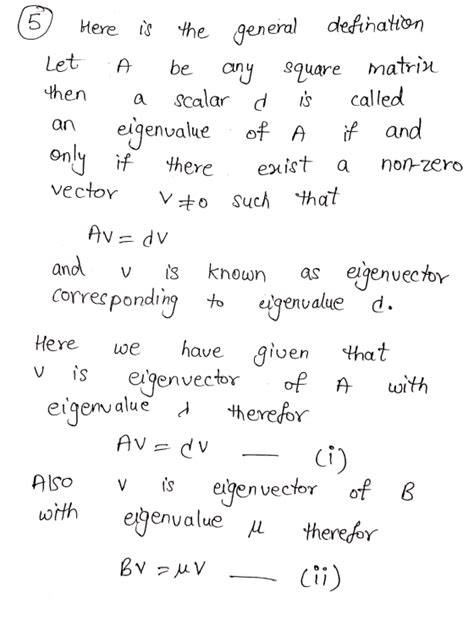 5 Here is the general defination
Let A be any square matrix
then a scalar d is called
an eigenvalue of A if and
only if there exist a non-zero
vector V≠0 such that
Av = dv
and v is known as eigenvector
corresponding to eigenvalue d.
Here we have given that
v is eigenvector of A with
eigenvalue d therefor
Av = dv — (i)
Also v is eigenvector of B
with eigenvalue μ therefor
Bv = μv — (ii)